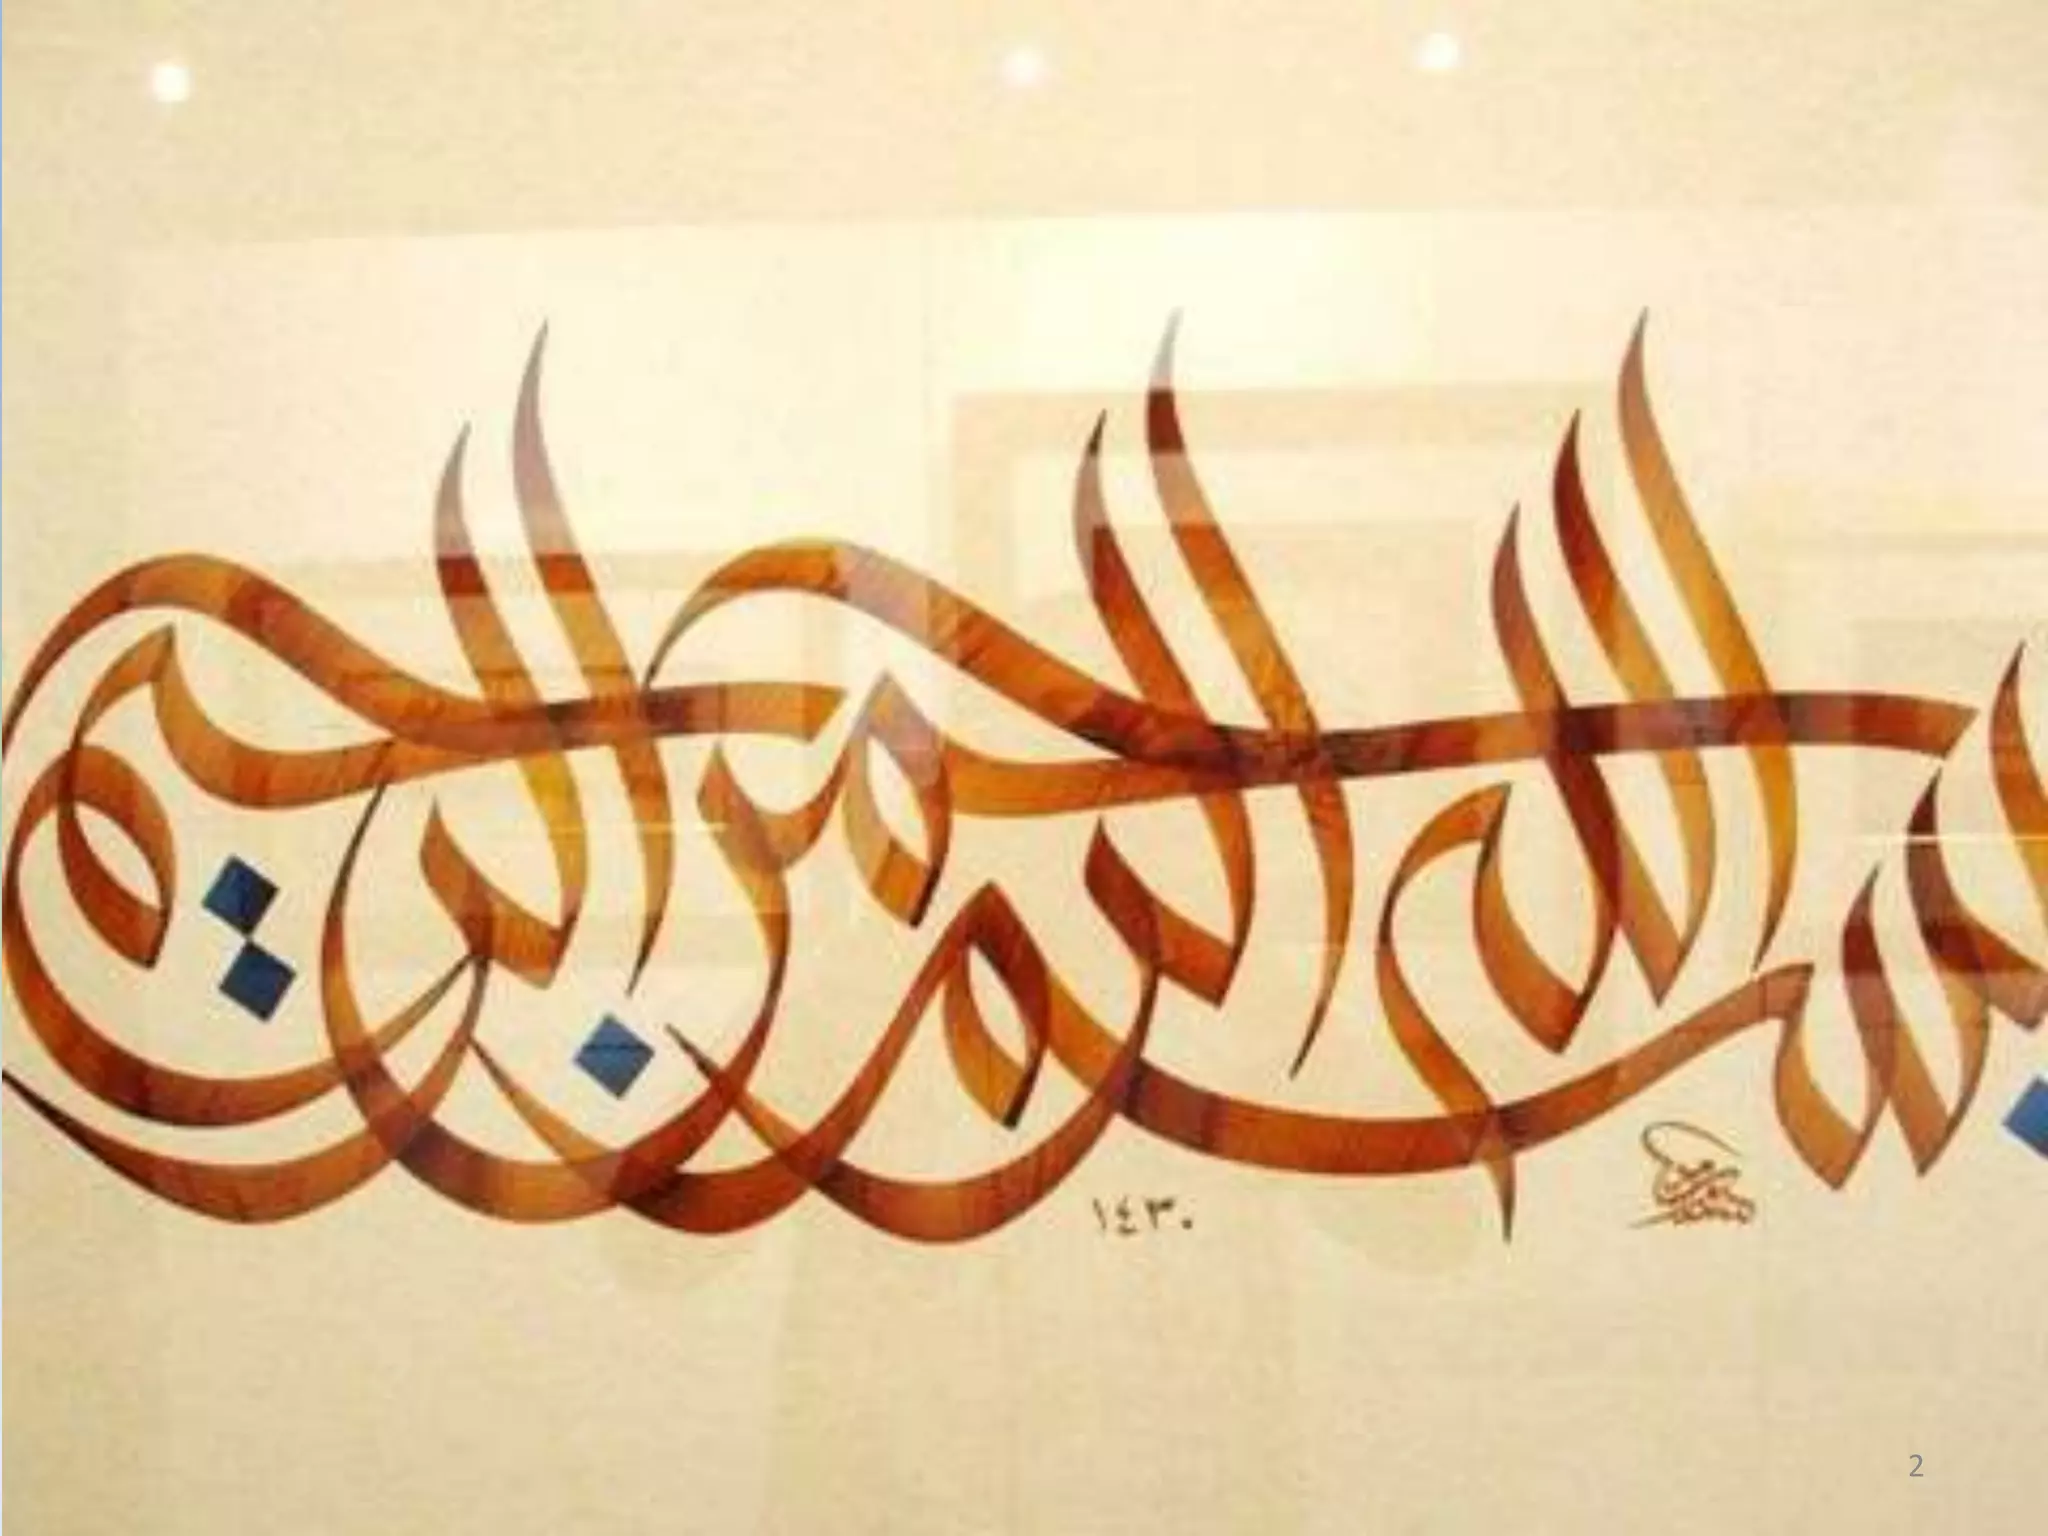 بسم الله الرحمن الرحيم
١٤٣٠
2